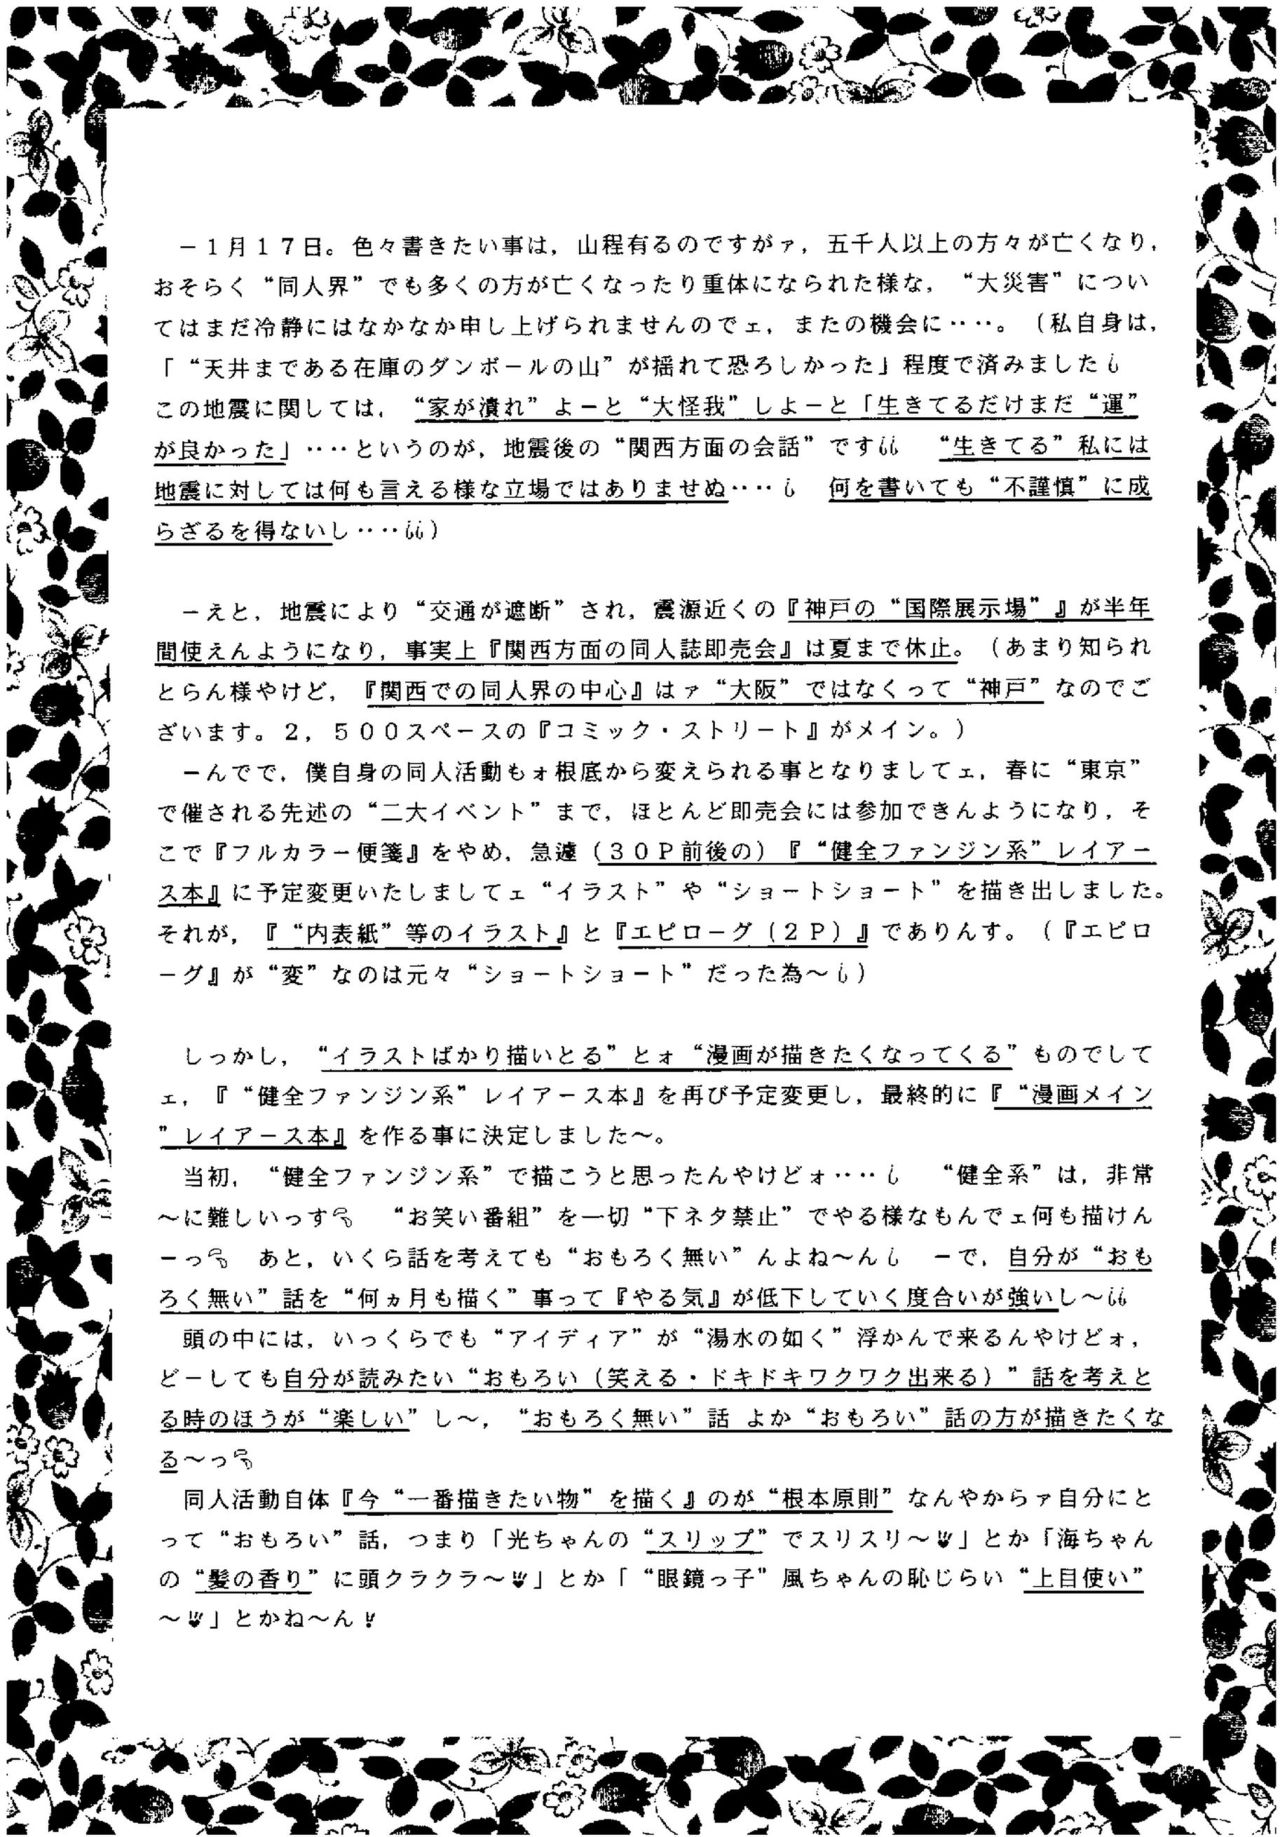 －１月１７日。色々書きたい事は，山程有るのですがァ，五千人以上の方々が亡くなり，
おそらく“同人界”でも多くの方が亡くなったり重体になられた様な，“大災害”につい
てはまだ冷静にはなかなか申し上げられませんのでェ，またの機会に‥‥。（私自身は，
「“天井まである在庫のダンボールの山”が揺れて恐ろしかった」程度で済みました💧
この地震に関しては，“家が潰れ”よーと“大怪我”しよーと「生きてるだけまだ“運”
が良かった」‥‥というのが，地震後の“関西方面の会話”です💧💧　“生きてる”私には
地震に対しては何も言える様な立場ではありませぬ‥‥💧　何を書いても“不謹慎”に成
らざるを得ないし‥‥💧💧）
－えと，地震により“交通が遮断”され，震源近くの『神戸の“国際展示場”』が半年
間使えんようになり，事実上『関西方面の同人誌即売会』は夏まで休止。（あまり知られ
とらん様やけど，『関西での同人界の中心』はァ“大阪”ではなくって“神戸”なのでご
ざいます。２，５００スペースの『コミック・ストリート』がメイン。）
－んでで，僕自身の同人活動もォ根底から変えられる事となりましてェ，春に“東京”
で催される先述の“二大イベント”まで，ほとんど即売会には参加できんようになり，そ
こで『フルカラー便箋』をやめ，急遽（３０Ｐ前後の）『“健全ファンジン系”レイアー
ス本』に予定変更いたしましてェ“イラスト”や“ショートショート”を描き出しました。
それが，『“内表紙”等のイラスト』と『エピローグ（２Ｐ）』でありんす。（『エピロ
ーグ』が“変”なのは元々“ショートショート”だった為～💧）
しっかし，“イラストばかり描いとる”とォ“漫画が描きたくなってくる”ものでして
ェ，『“健全ファンジン系”レイアース本』を再び予定変更し，最終的に『“漫画メイン
”レイアース本』を作る事に決定しました～。
当初，“健全ファンジン系”で描こうと思ったんやけどォ‥‥💧　“健全系”は，非常
～に難しいっす　“お笑い番組”を一切“下ネタ禁止”でやる様なもんでェ何も描けん
ーっ　あと，いくら話を考えても“おもろく無い”んよね～ん💧　－で，自分が“おも
ろく無い”話を“何ヵ月も描く”事って『やる気』が低下していく度合いが強いし～💧💧
頭の中には，いっくらでも“アイディア”が“湯水の如く”浮かんで来るんやけどォ，
どーしても自分が読みたい“おもろい（笑える・ドキドキワクワク出来る）”話を考えと
る時のほうが“楽しい”し～，“おもろく無い”話 よか“おもろい”話の方が描きたくな
る～っ
同人活動自体『今“一番描きたい物”を描く』のが“根本原則”なんやからァ自分にと
って“おもろい”話，つまり「光ちゃんの“スリップ”でスリスリ～♥」とか「海ちゃん
の“髪の香り”に頭クラクラ～♥」とか「“眼鏡っ子”風ちゃんの恥じらい“上目使い”
～♥」とかね～ん！